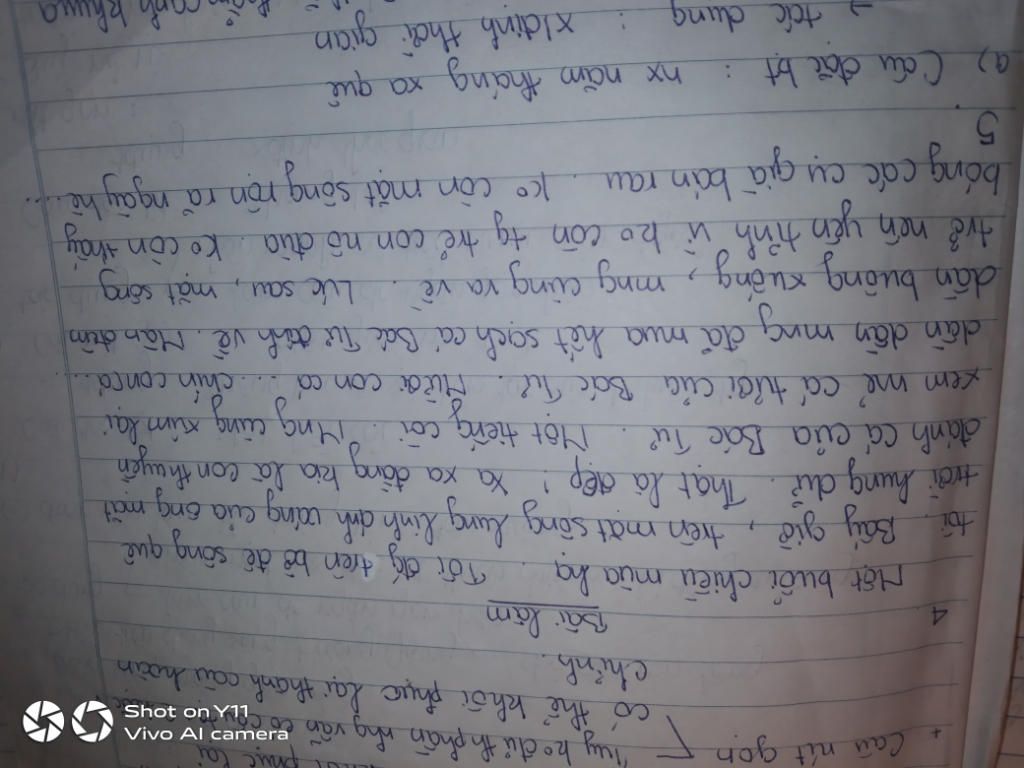 + Câu rút gọn
Tuy ko đủ th phần nhg vẫn có
có thể khôi phục lại thành câu hoàn
chỉnh.
Bài làm
4
Một buổi chiều mùa hạ. Tôi đg trên bờ đê sông quê
tôi. Bấy giờ, trên mặt sông lung linh ánh vàng của ông mặt
trời hung dữ. Thật là đẹp! Xa xa đằng kia là con thuyền
đánh cá của Bác Tư. Một tiếng còi. Mng cùng xúm lại
xem mẻ cá tươi của Bác Tư. Mười con cá... chín con cá...
dần dần mng đã mua hết sạch cá Bác Tư đánh về. Màn đêm
dần buông xuống, mng cùng ra về. Lúc sau, mặt sông
trở nên yên tĩnh vì ko còn tg trẻ con nô đùa. Ko còn thấy
bóng các cụ già bán rau. Ko còn mặt sông rộn rã ngày hè...
5
a) Câu đặc bt : nx năm tháng xa quê
→ tác dụng : x/định thời gian
Shot on Y11
Vivo AI camera